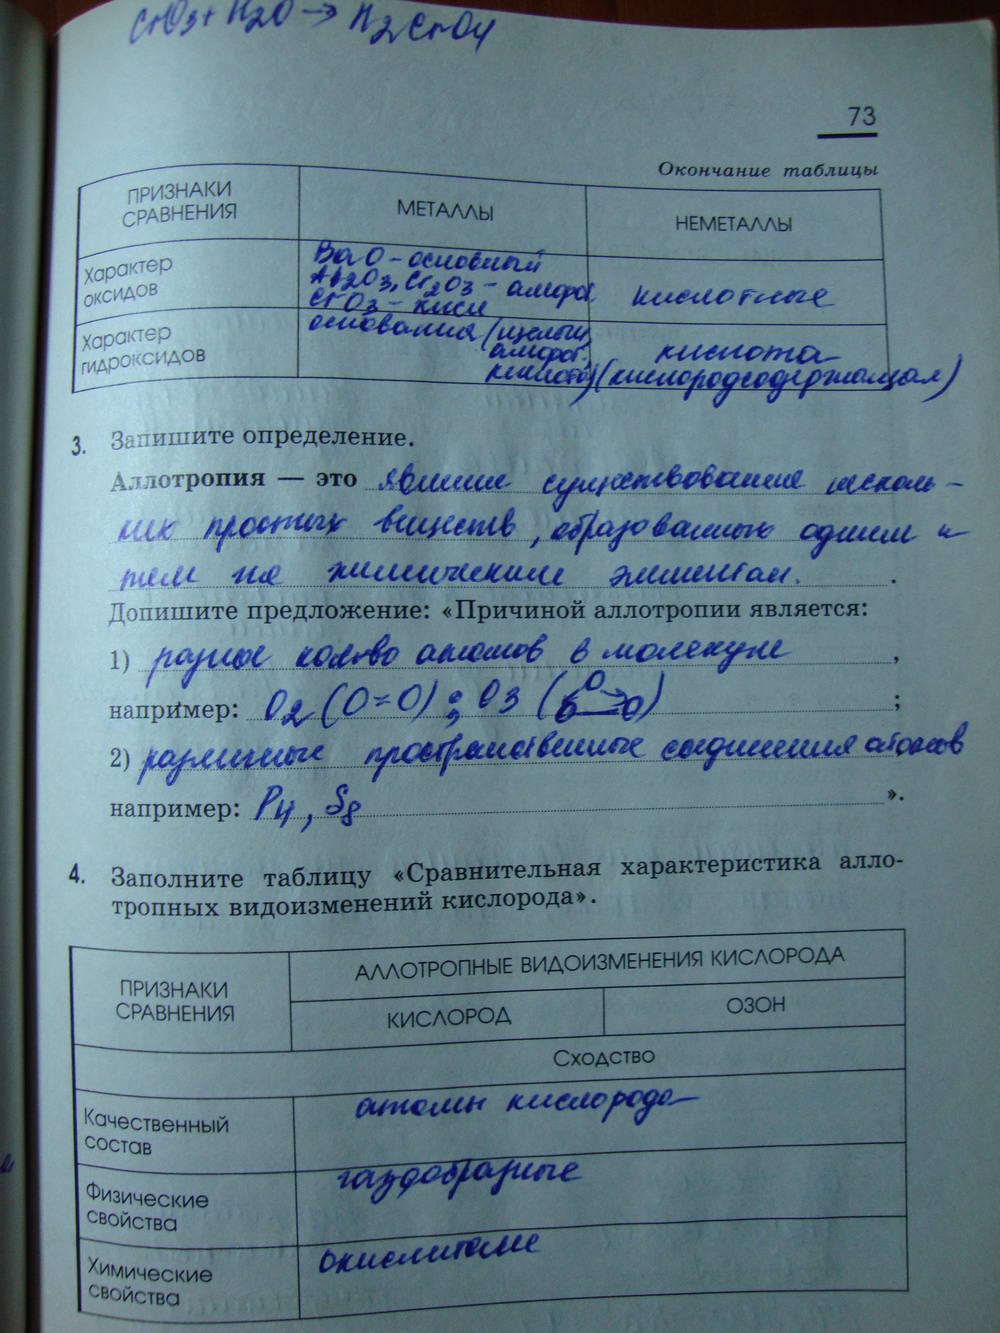 CrO3 + H2O → H2CrO4
73
Окончание таблицы
ПРИЗНАКИ СРАВНЕНИЯ
МЕТАЛЛЫ
НЕМЕТАЛЛЫ
Характер оксидов
BaO - основный
Al2O3, Cr2O3 - амфот.
CrO3 - кисл
кислотные
Характер гидроксидов
основания (щелочи,
амфот.
кислота)
кислота
(кислородсодержащая)
3. Запишите определение.
Аллотропия — это явление существования несколь-
ких простых веществ, образованных одним и
тем же химическим элементом.
Допишите предложение: «Причиной аллотропии является:
1) разное кол-во атомов в молекуле ,
например: O2 (O=O) ; O3 ;
2) различные пространственные соединения атомов
например: P4, S8 ».
4. Заполните таблицу «Сравнительная характеристика алло-
тропных видоизменений кислорода».
ПРИЗНАКИ СРАВНЕНИЯ
АЛЛОТРОПНЫЕ ВИДОИЗМЕНЕНИЯ КИСЛОРОДА
КИСЛОРОД
ОЗОН
Сходство
Качественный состав
атомы кислорода
Физические свойства
газообразные
Химические свойства
окислители